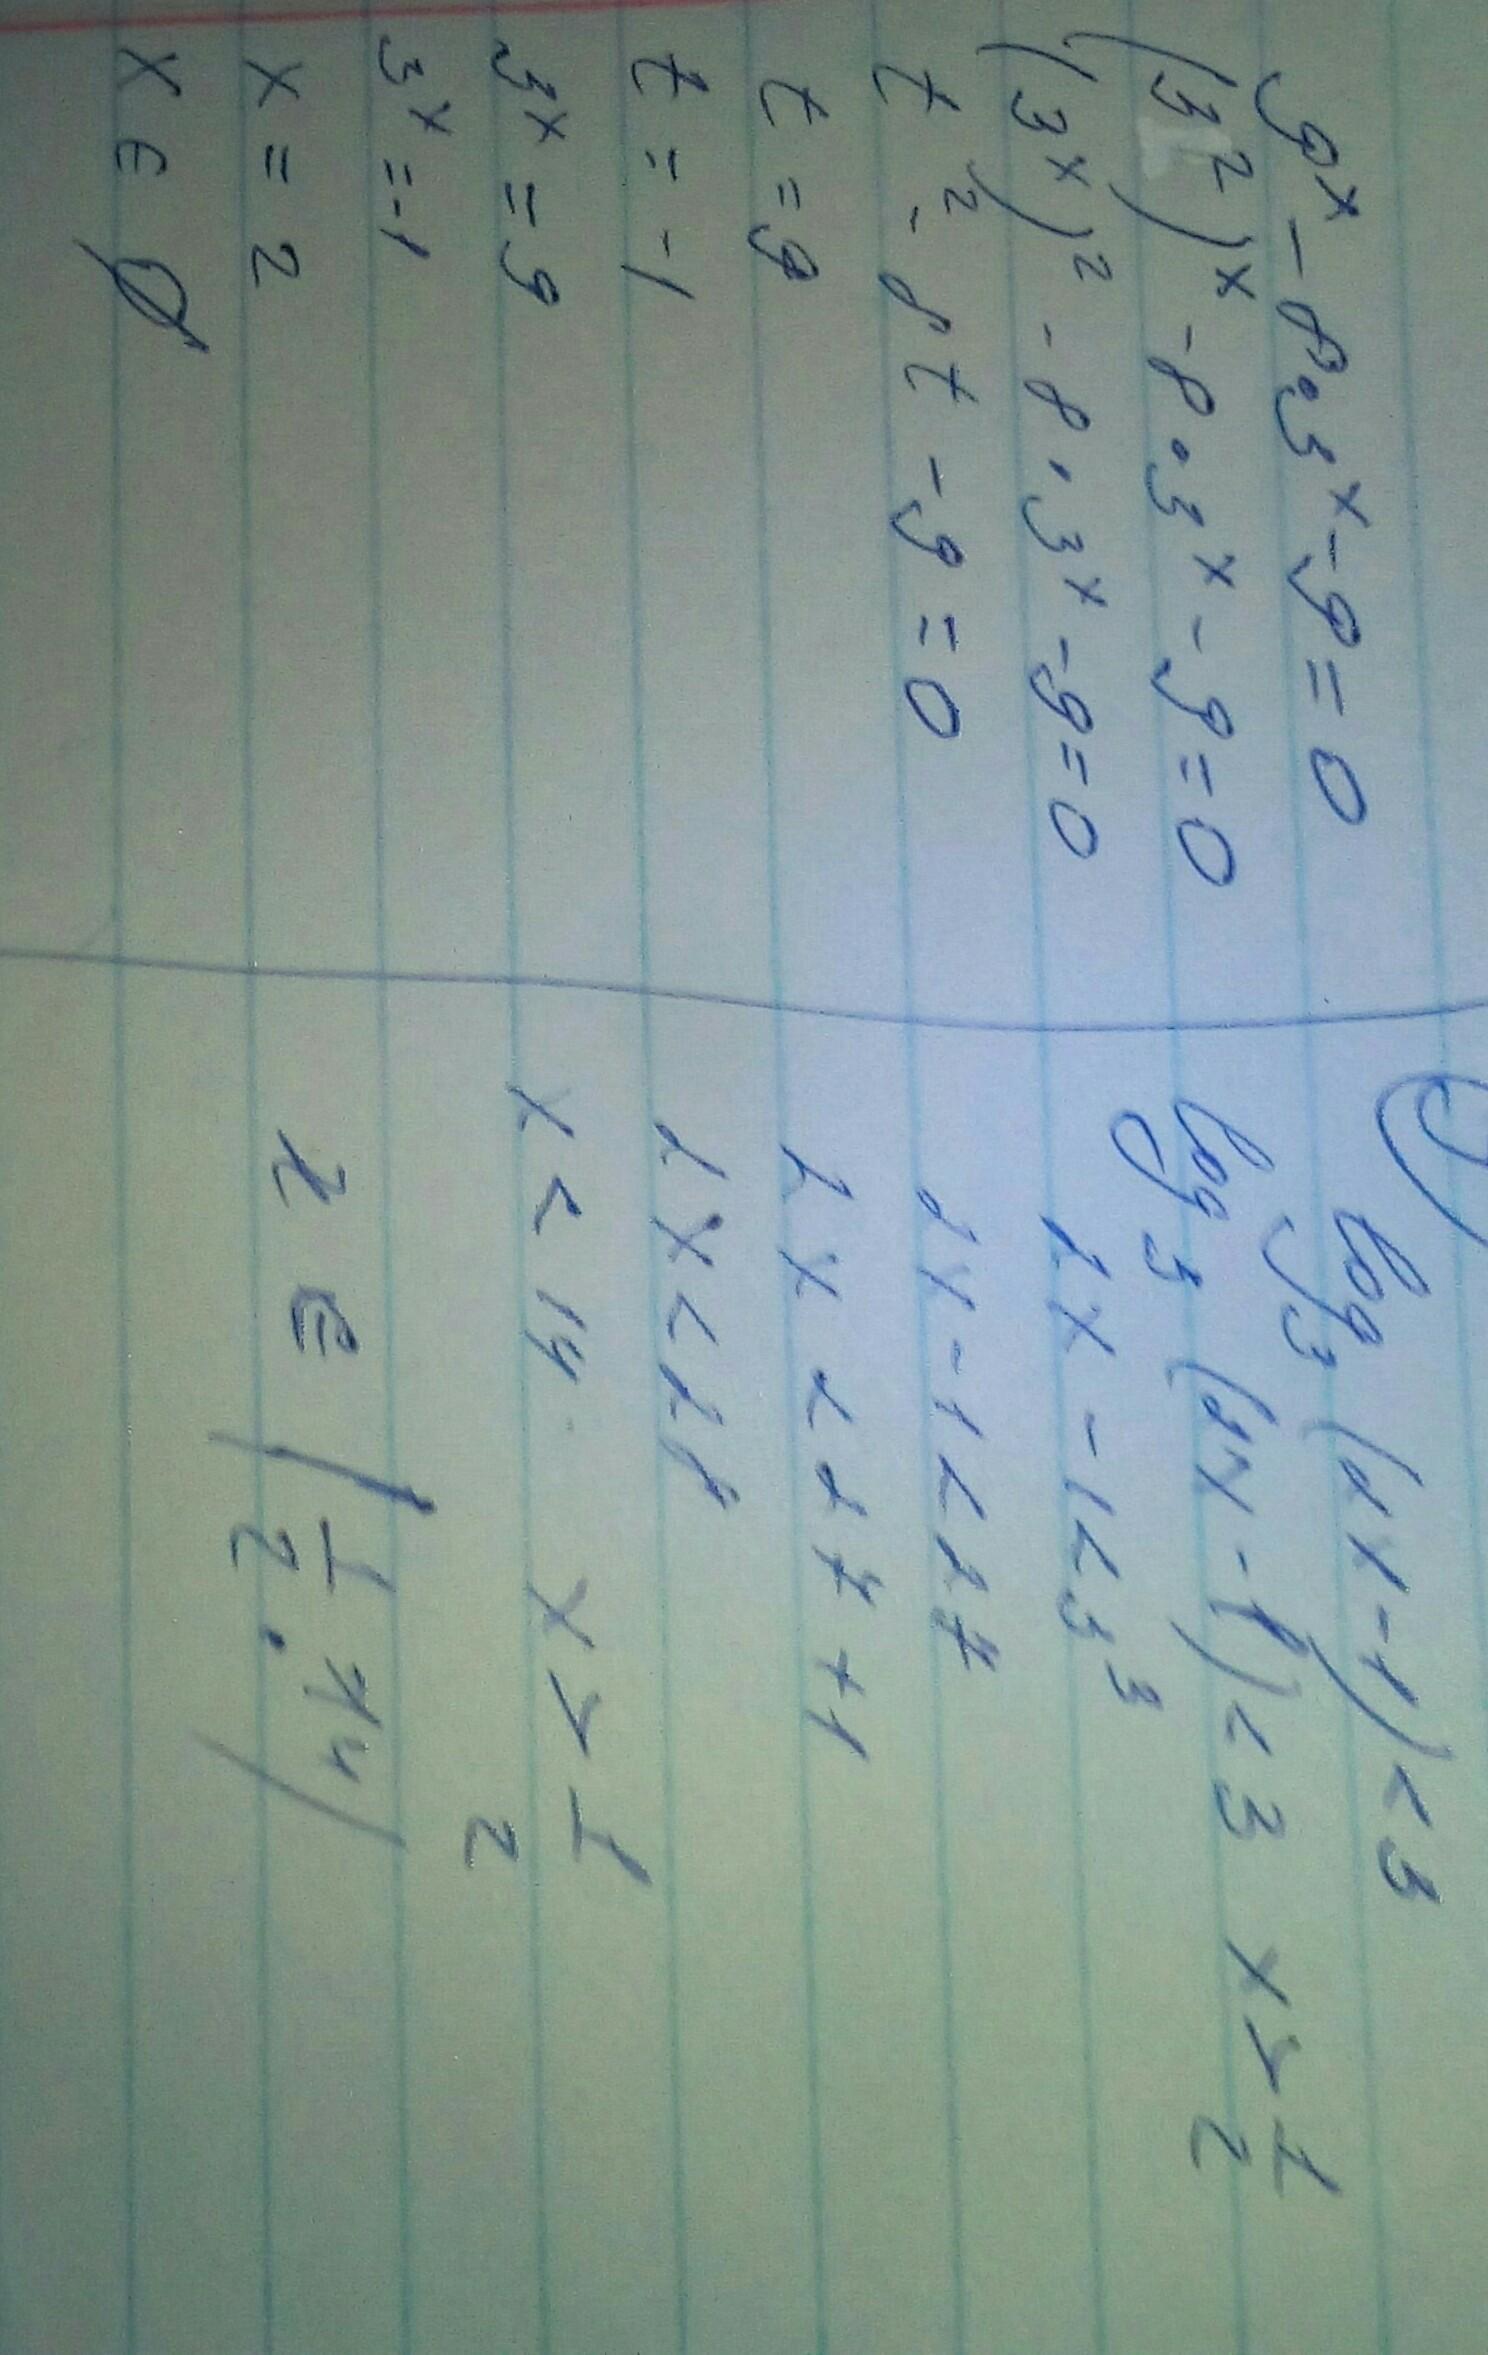 9^x - 8·3^x - 9 = 0
(3^2)^x - 8·3^x - 9 = 0
(3^x)^2 - 8·3^x - 9 = 0
t^2 - 8t - 9 = 0
t = 9
t = -1
3^x = 9
3^x = -1
x = 2
x ∈ ∅
log_3 (2x - 1) < 3
log_3 (2x - 1) < 3 x > 1/2
2x - 1 < 3^3
2x - 1 < 27
2x < 27 + 1
2x < 28
x < 14 x > 1/2
∈ (1/2 . 14)